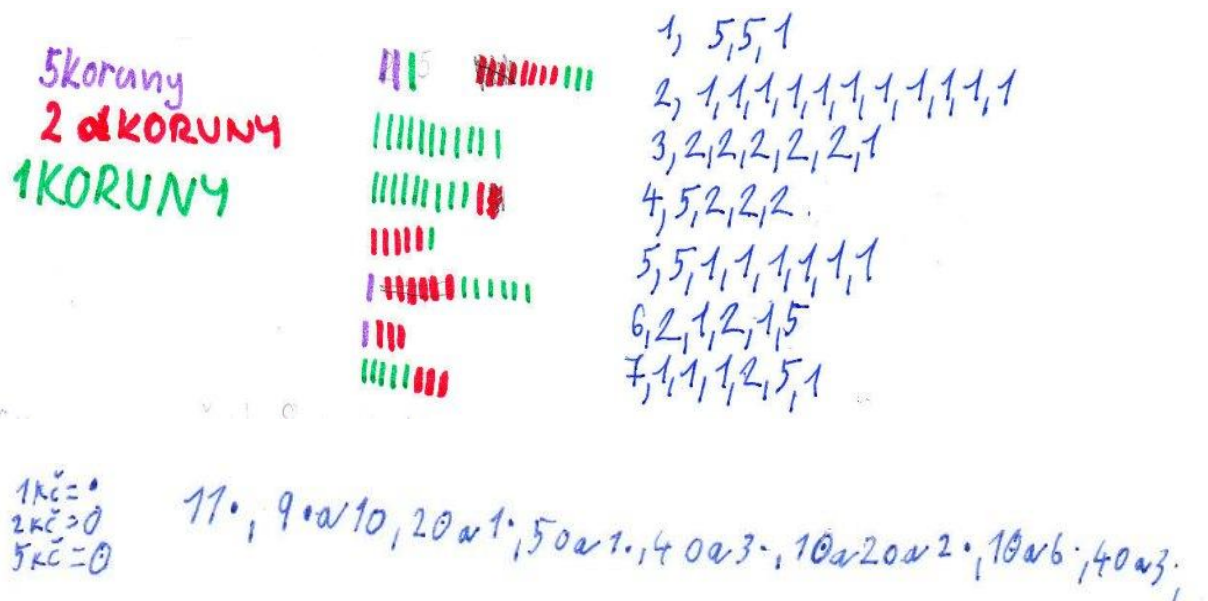 5koruny
2 KORUNY
1KORUNY
1, 5,5,1
2, 1,1,1,1,1,1,1,1,1,1,1
3,2,2,2,2,2,1
4,5,2,2,2.
5,5,1,1,1,1,1,1
6,2,1,2,1,5
7,1,1,1,2,5,1
1Kč=•
2Kč=0
5Kč=ʘ
11•, 9•a10, 20a1•, 50a1•, 40a3•, 1ʘa20a2•, 1ʘa6•, 40a3•,